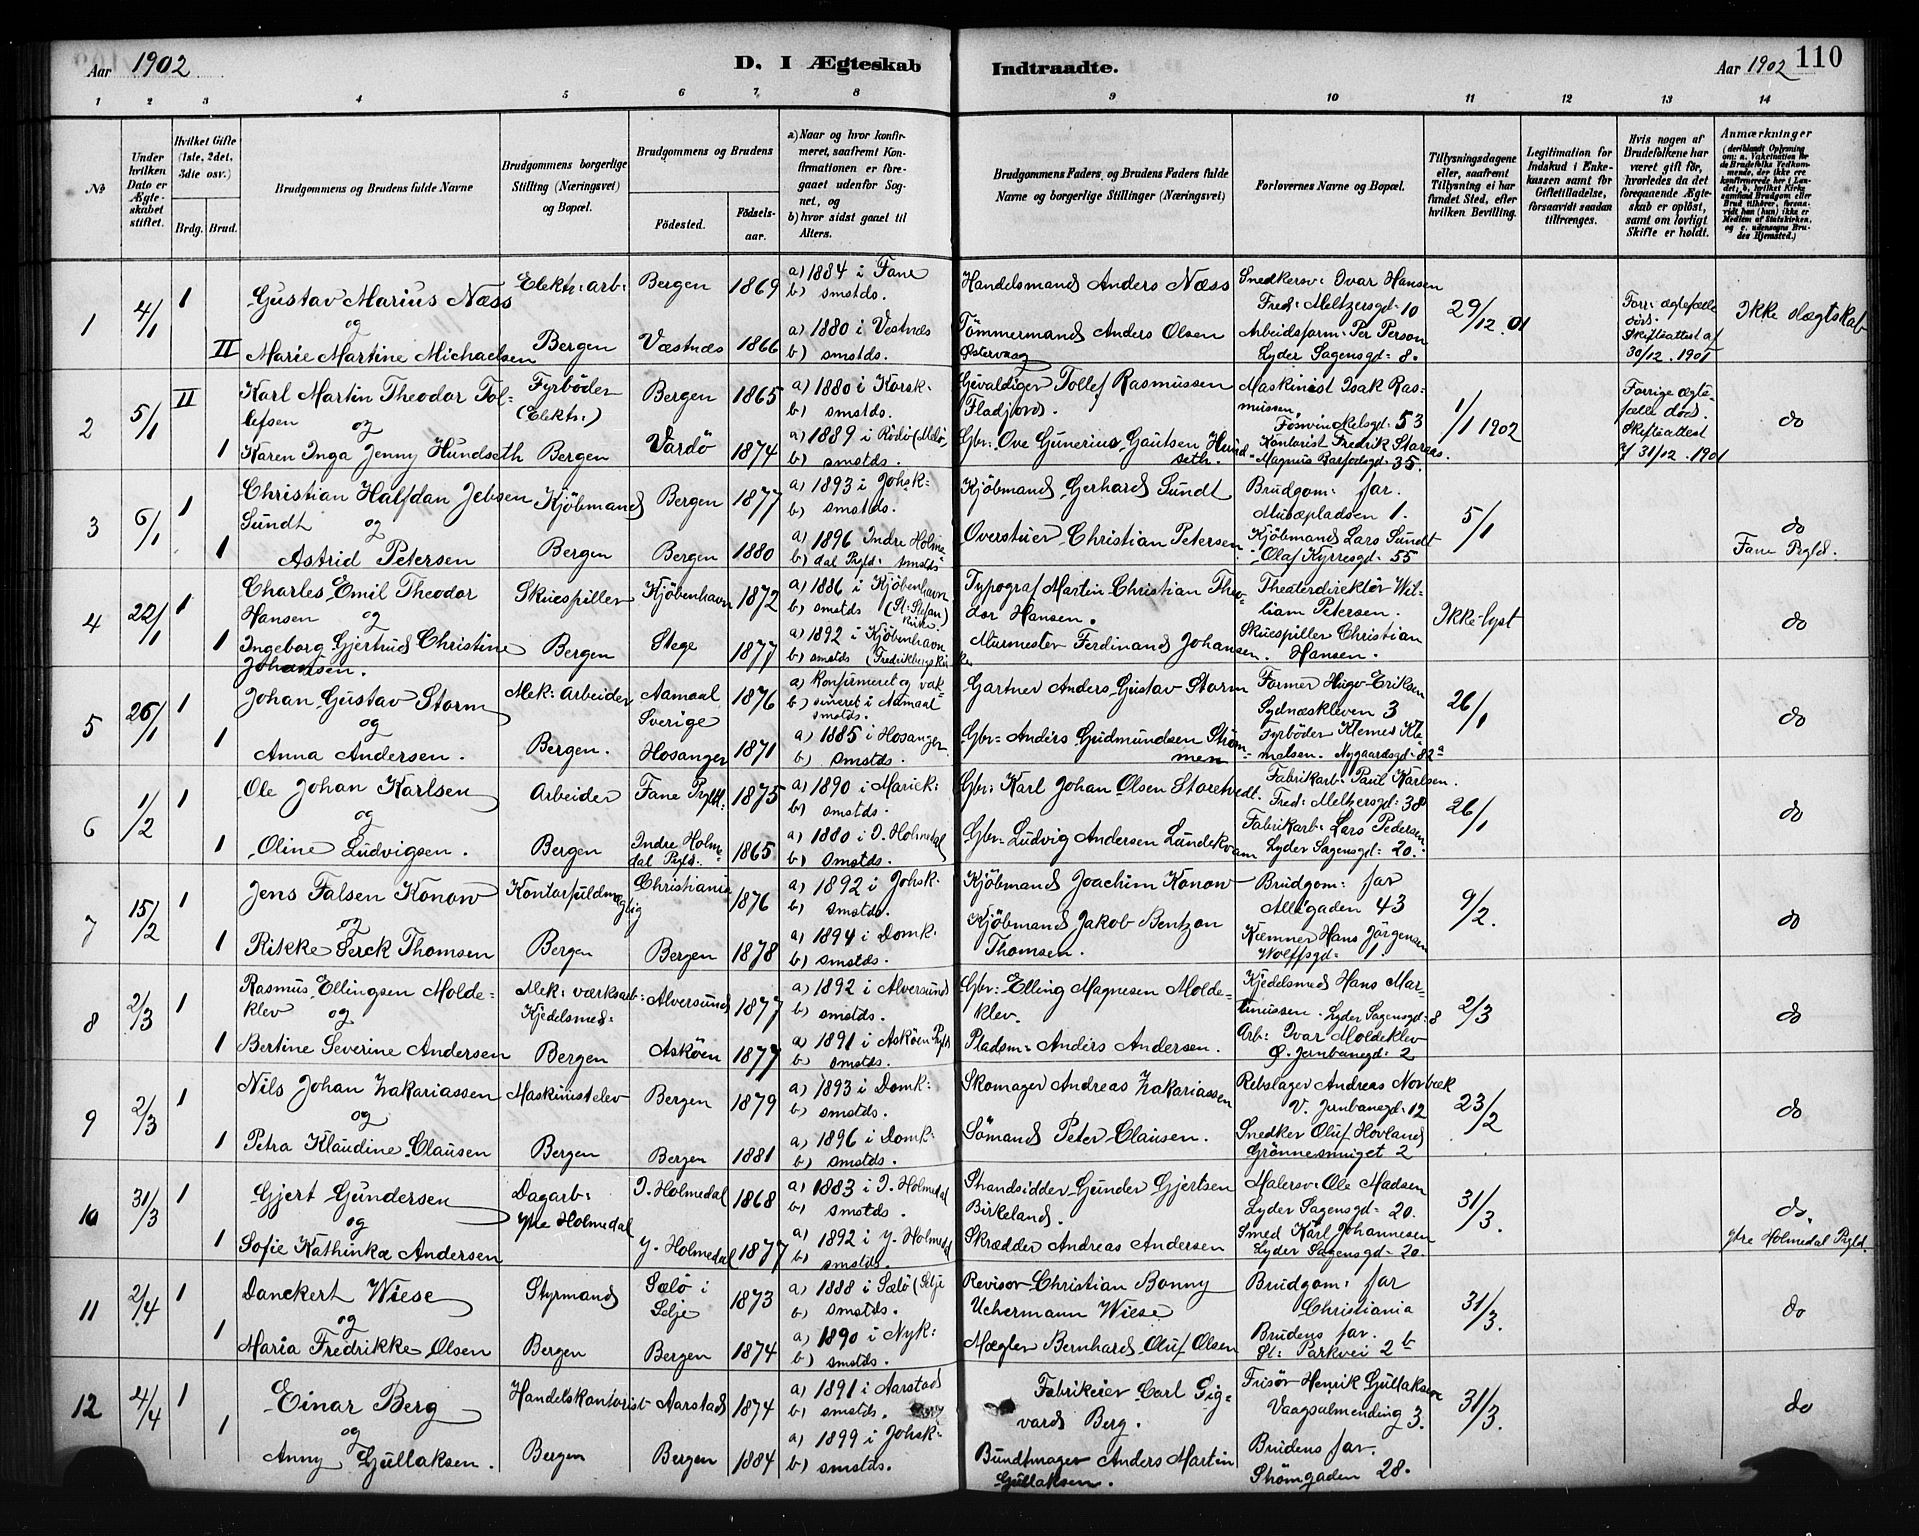 Aar 1902
D. I Ægteskab
Indtraadte.
Aar 1902
110
1 2 3 4 5 6 7 8 9 10 11 12 13 14
№
Under hvilken Dato er Ægteskabet stiftet.
Hvilket Gifte (1ste, 2det, 3die osv.)
Brdg. Brud.
Brudgommens og Brudens fulde Navne
Brudgommens borgerlige Stilling (Næringsvei) og Bopæl.
Brudgommens og Brudens
Fødested.
Fødselsaar.
a) Naar og hvor konfirmeret, saafremt Konfirmationen er foregaaet udenfor Sognet, og
b) hvor sidst gaaet til Alters.
Brudgommens Faders og Brudens Faders fulde Navne og borgerlige Stillinger (Næringsvei)
Forlovernes Navne og Bopæl.
Tillysningsdagene eller, saafremt Tillysning ei har fundet Sted, efter hvilken Bevilling.
Legitimation for Indskud i Enkekassen samt for Giftetilladelse, forsaavidt saadan tiltrænges.
Hvis nogen af Brudefolkene har været gift før, hvorledes da det foregaaende Ægteskab er opløst, samt om lovligt Skifte er holdt.
Anmærkninger
(deriblandt Oplysning om: a. Vakcination for de Brudefolks Vedkommende, der ikke ere konfirmerede her i Landet; b. hvilket Kirkesamfund Brudgom eller Brud tilhører, forsaavidt han (hun) ikke er Medlem af Statskirken, og c. udensogns Brudes Hjemsted.)
1 4/1 1 Gustav Marius Næss Elektr: arb: Bergen 1869 a) 1884 i Fane b) smstds. Handelsmand Anders Næss Snedkersv: Ivar Hansen Fred: Meltzersgd: 10 29/12 01 Forr: ægtefælle død. Skifteattest af 30/12. 1901 Ikke slægtskab
og
II Marie Martine Michaelsen Bergen Væstnæs 1866 a) 1880 i Vestnæs b) smstds. Tømmermand Anders Olsen Østervaag Arbeidsform: Per Person Lyder Sagensgd: 8.
2 5/1 II Karl Martin Theodor Tollefsen Fyrbøder (Elektr:) Bergen 1865 a) 1880 i Korsk: b) smstds. Gevaldiger Tollef Rasmussen Fladjord. Maskinist Isak Rasmussen, Fosvinkelsgd: 53 1/1 1902 Forrige ægtefælle død. Skifteattest 31/12. 1901 do
og
1 Karen Inga Jenny Hundseth Bergen Vardö 1874 a) 1889 i Rödö (Melö) b) smstds. Gbr: Ove Gunerius Gautsen Hundseth. Kontorist Fredrik Staraas. Magnus Barfodsgd: 35.
3 6/1 1 Christian Halfdan Jebsen Sundt Kjøbmand Bergen 1877 a) 1893 i Johsk: b) smstds. Kjøbmand Gerhard Sundt Brudgom: far. Musæpladsen 1. 5/1 do
og
1 Astrid Petersen Bergen Bergen 1880 a) 1896 Indre Holmedal Prgld: b) smstds Overstuer Christian Petersen Kjøbmand Lars Sundt Olaf Kyrresgd: 55 Fane Prgld.
4 22/1 1 Charles Emil Theodor Hansen Skuespiller Kjøbenhavn 1872 a) 1886 i Kjøbenhavn b) smstds (St: Stefan Kirke) Typograf Martin Christian Theodor Hansen. Theaterdirektör William Petersen. Ikke lyst do
og
1 Ingeborg Gjertrud Christine Johansen. Bergen Stege 1877 a) 1892 i Kjøbenhavn b) smstds (Fredrikbergs Kirke Murmester Ferdinand Johansen. Skuespiller Christian Hansen.
5 26/1 1 Johan Gustav Storm Mek: Arbeider Aamaal Sverige 1876 a) Konfirmeret og vaksineret i Aamaal b) smstds. Gartner Anders Gustav Storm Former Hugo Eriksen Sydnæskleven 3 26/1 do
og
1 Anna Andersen. Bergen. Hosanger 1871 a) 1885 i Hosanger. b) smstds. Gbr: Anders Gudmundsen Strømmen Fyrbøder Klemet Klemetsen. Nygaardsgd: 82a
6 1/2 1 Ole Johan Karlsen Arbeider Fane Prgld: 1875 a) 1890 i Mariek: b) smstds. Gbr: Karl Johan Olsen Storetvedt. Fabrikarb: Paul Karlsen. Fred: Meltzersgd: 38 26/1 do
og
1 Oline Ludvigsen. Bergen Indre Holmedal Prgld: 1865 a) 1880 i I. Holmedal b) smstds. Gbr: Ludvig Andersen Lundekvam Fabrikarb: Lars Pedersen. Lyder Sagensgd: 20.
7 15/2 1 Jens Falsen Konow Kontorfuldmægtig Christiania 1876 a) 1892 i Johsk: b) smstds. Kjøbmand Joachim Konow Brudgom: far Allégaden 43 9/2. do
og
1 Rikke Serck Thomsen Bergen Bergen 1878 a) 1894 i Domk: b) smstds. Kjøbmand Jakob Bentzon Thomsen. Kæmner Hans Jörgensen Wolffsgd: 1.
8 2/3 1 Rasmus Ellingsen Moldeklev Mek: værksarb: Kjedelsmed: Alversund 1877 a) 1892 i Alversund b) smstds. Gbr: Elling Magnesen Moldeklev. Kjedelsmed Hans Martinussen. Lyder Sagensgd: 8 2/3 do
og
1 Bertine Severine Andersen Bergen Askøen 1877 a) 1891 i Askøen Prgld b) smstds. Pladsm: Anders Andersen. Arb: Ivar Moldeklev Ø. Jernbanegd: 2
9 2/3 1 Nils Johan Zakariassen Maskinistelev Bergen 1879 a) 1893 i Domk: b) smstds. Skomager Andreas Zakariassen Rebslager Andreas Norbæk V. Jernbanegd: 12 23/2 do
og
1 Petra Klaudine Clausen Bergen Bergen 1881 a) 1896 i Domk: b) smstds. Sömand Peter Clausen. Snedker Oluf Hovland Grönnesmuget 2
10 31/3 1 Gjert Gundersen Dagarb: Ytre Holmedal I. Holmedal 1868 a) 1883 i I. Holmedal b) smstds. Strandsidder Gunder Gjertsen Birkeland. Malersv: Ole Madsen Lyder Sagensgd: 20. 31/3. do.
og
1 Sofie Kathinka Andersen Y. Holmedal 1877 a) 1892 i Y. Holmedal b) smstds. Skrædder Andreas Andersen Smed Karl Johannesen Lyder Sagensgd: 20. Ytre Holmedal Prgld.
11 2/4 1 Danckert Wiese Styrmand Sælö i Selje 1873 a) 1888 i Sælö (Selje b) smstds. Revisor Christian Bonny Uchermann Wiese Brudgom: far Christiania 31/3. do
og
1 Maria Fredrikke Olsen Bergen Bergen 1874 a) 1890 i Nyk: b) smstds. Mægler Bernhard Oluf Olsen Brudens far. St: Parkvei 2b
12 4/4 1 Einar Berg Handelskontorist Aarstad 1874 a) 1891 i Aarstad b) smstds. Fabrikeier Carl Sigvard Berg. Frisör Henrik Gullaksen Vaagsalmending 3. 31/3. do
og
1 Anny Gullaksen. Bergen Bergen 1884 a) 1899 i Johsk: b) smstds. Bundtmager Anders Martin Gullaksen. Brudens far. Strömgaden 28.